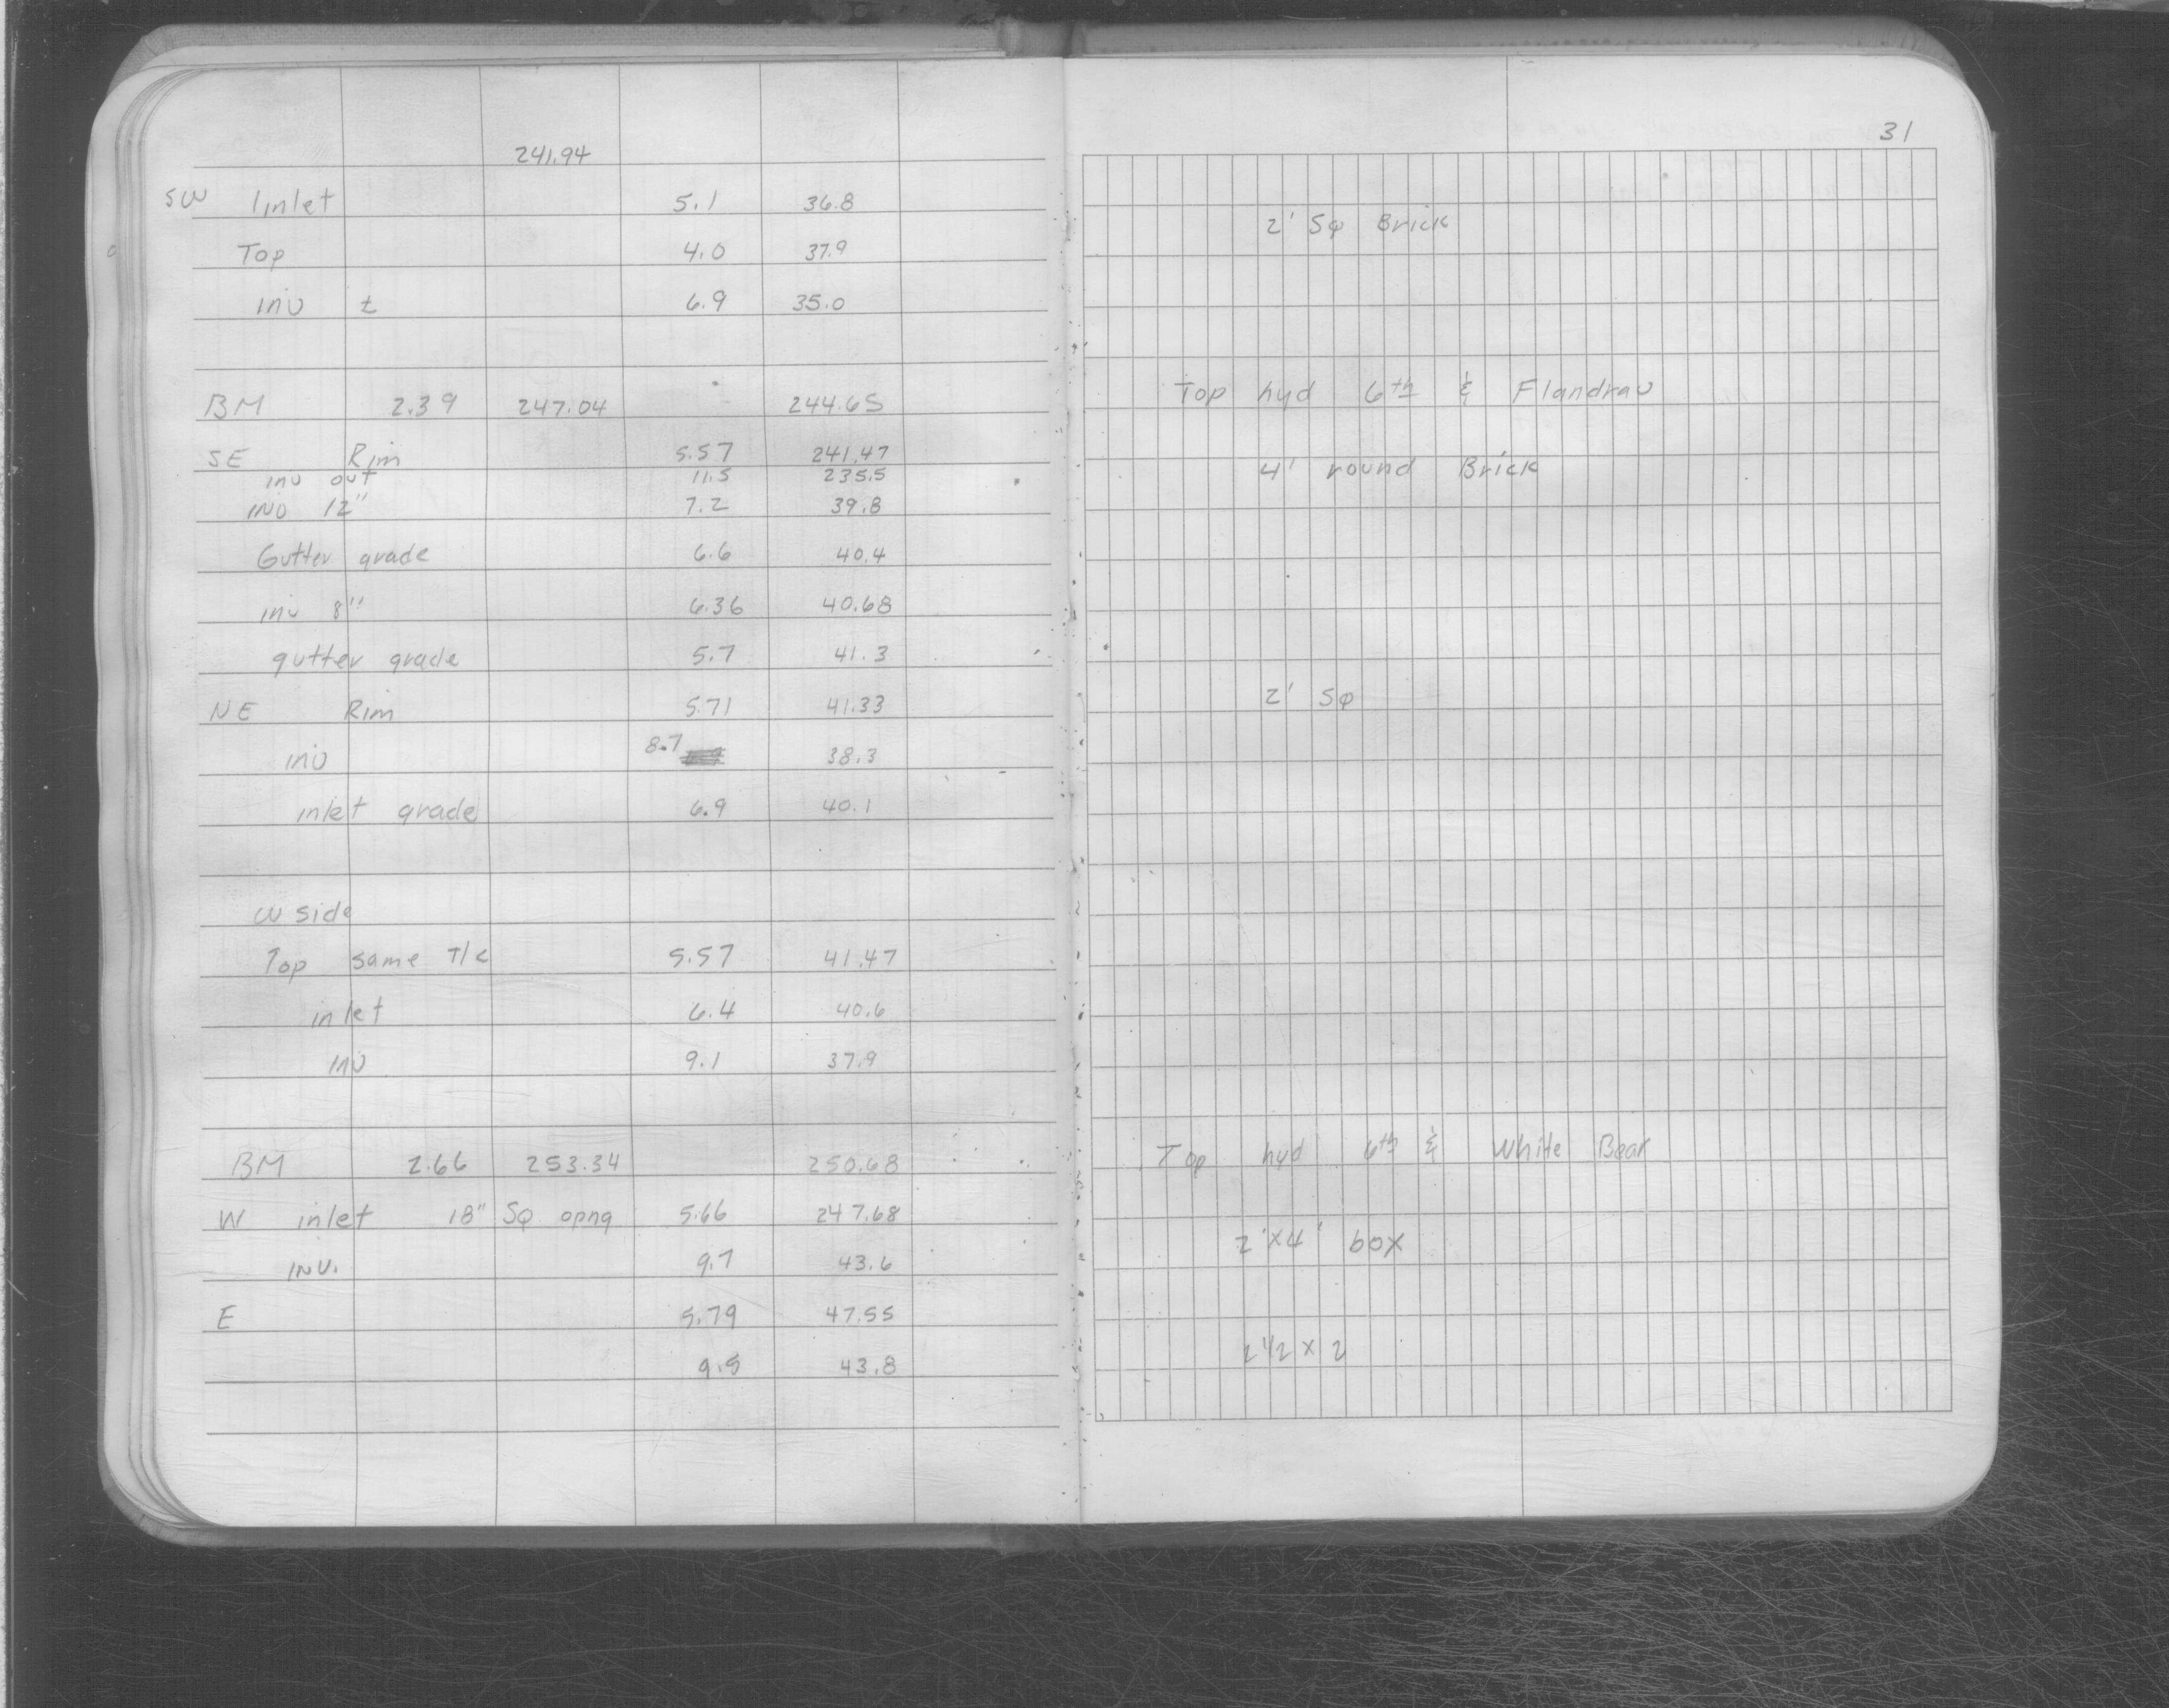 241.94
SW Inlet 5.1 36.8
Top 4.0 37.9
inv ± 6.9 35.0
BM 2.39 247.04 244.65
SE Rim 5.57 241.47
inv out 11.5 235.5
INV 12" 7.2 39.8
Gutter grade 6.6 40.4
inv 8" 6.36 40.68
gutter grade 5.7 41.3
NE Rim 5.71 41.33
inv 8.7 38.3
inlet grade 6.9 40.1
W side
Top same T/C 5.57 41.47
inlet 6.4 40.6
INV 9.1 37.9
BM 2.66 253.34 250.68
W inlet 18" Sq opng 5.66 247.68
INV. 9.7 43.6
E 5.79 47.55
9.5 43.8
31
2' Sq Brick
Top hyd 6th & Flandrau
4' round Brick
2' Sq
Top hyd 6th & White Bear
2'x4' box
2 1/2 x 2